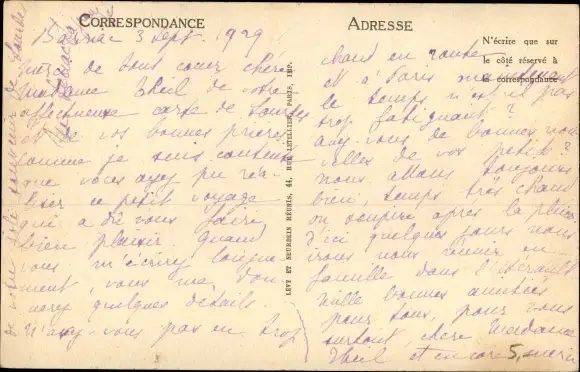 CORRESPONDANCE
ADRESSE
N'écrire que sur
le côté réservé à
la correspondance
3 Sept. 1929
Merci de tout cœur chère
Madame Theil de votre
affectueuse carte de Lourdes
et de vos bonnes prières
comme je suis contente
que vous ayez pu réa-
liser ce petit voyage
qui a dû vous faire
bien plaisir quand
vous m'écrirez longue-
ment, vous me don-
nerez quelques détails.
N'avez-vous pas eu trop
chaud en route
et à Paris
le temps n'est-il pas
trop fatiguant?
avez-vous de bonnes nou
velles de vos petits?
nous allons toujours
bien, temps très chaud
on soupire après la pluie
d'ici quelques jours nous
irons nous réunir en
famille dans l'Hérault
Mille bonnes amitiés
pour tous, pour vous
surtout, chère Madame
Theil et encore merci
LÉVY ET NEURDEIN RÉUNIS, 44, RUE LETELLIER, PARIS, IMP.
souvenir de Lourdes